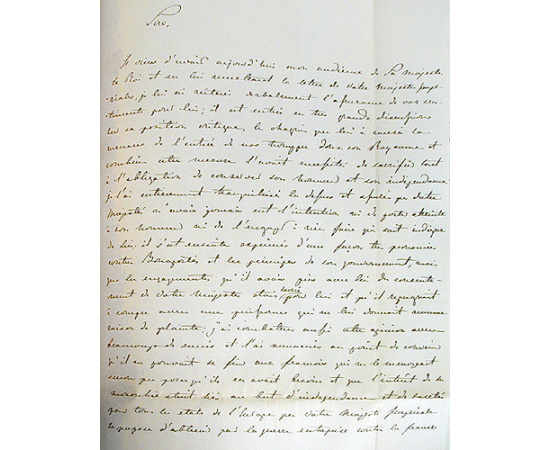 Sire,
Je viens d'avoir aujourd'hui mon audience de Sa Majesté
le Roi et en lui remettant la lettre de votre Majesté Impé-
riale, je lui ai réitéré verbalement l'assurance de vos sen-
timents pour lui; il est entré en très grande discussion
sur sa position critique, le chagrin que lui a causé la
menace de l'entrée de nos trouppes dans son Royaume et
combien cette mesure l'avait de sacrifier tout
à l'obligation de conserver son honneur et son indépendance
j'l'ai entièrement tranquilisé la dessus et que votre
Majesté n'avais jamais eut l'intention ni de porter atteinte
à son honneur ni de l'engager à rien faire qui soit indigne
de lui. il s'est ensuite exprimé d'une façon très prononcée
contre Bonaparte et les principes de son gouvernement, mais
que les engagements qu'il avait pris avec lui du consente-
ment de votre Majesté étais sacré pour lui et qu'il répugnait
à rompre avec une puissance qui ne lui donnait aucune
raison de plainte. j'ai combattu aussi cette opinion avec
beaucoup de succès et l'ai au point de convenir
qu'il ne pouvait se fier aux francois qui ne le menageait
que parcequ'ils en avait besoin et que l'intérêt de sa
monarchie était lié au but d'indépendance et de sureté
pour tous les etats de l'Europe que votre Majesté Impériale
se propose d'obtenir par la guerre entreprise contre la france